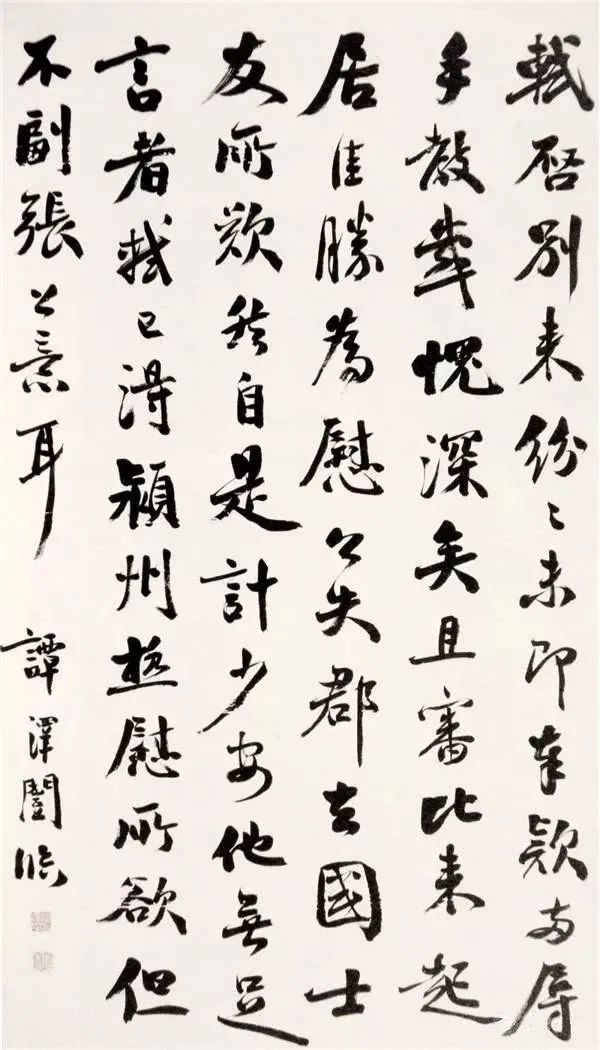 軾啓別来紛〻未即奉欵两辱
手教愧深矣且審比来起
居佳勝為慰公失郡去國士
友所歎然自是計少安他無足
言者軾已得潁州極慰所欲但
不副張公意耳 譚澤闓臨